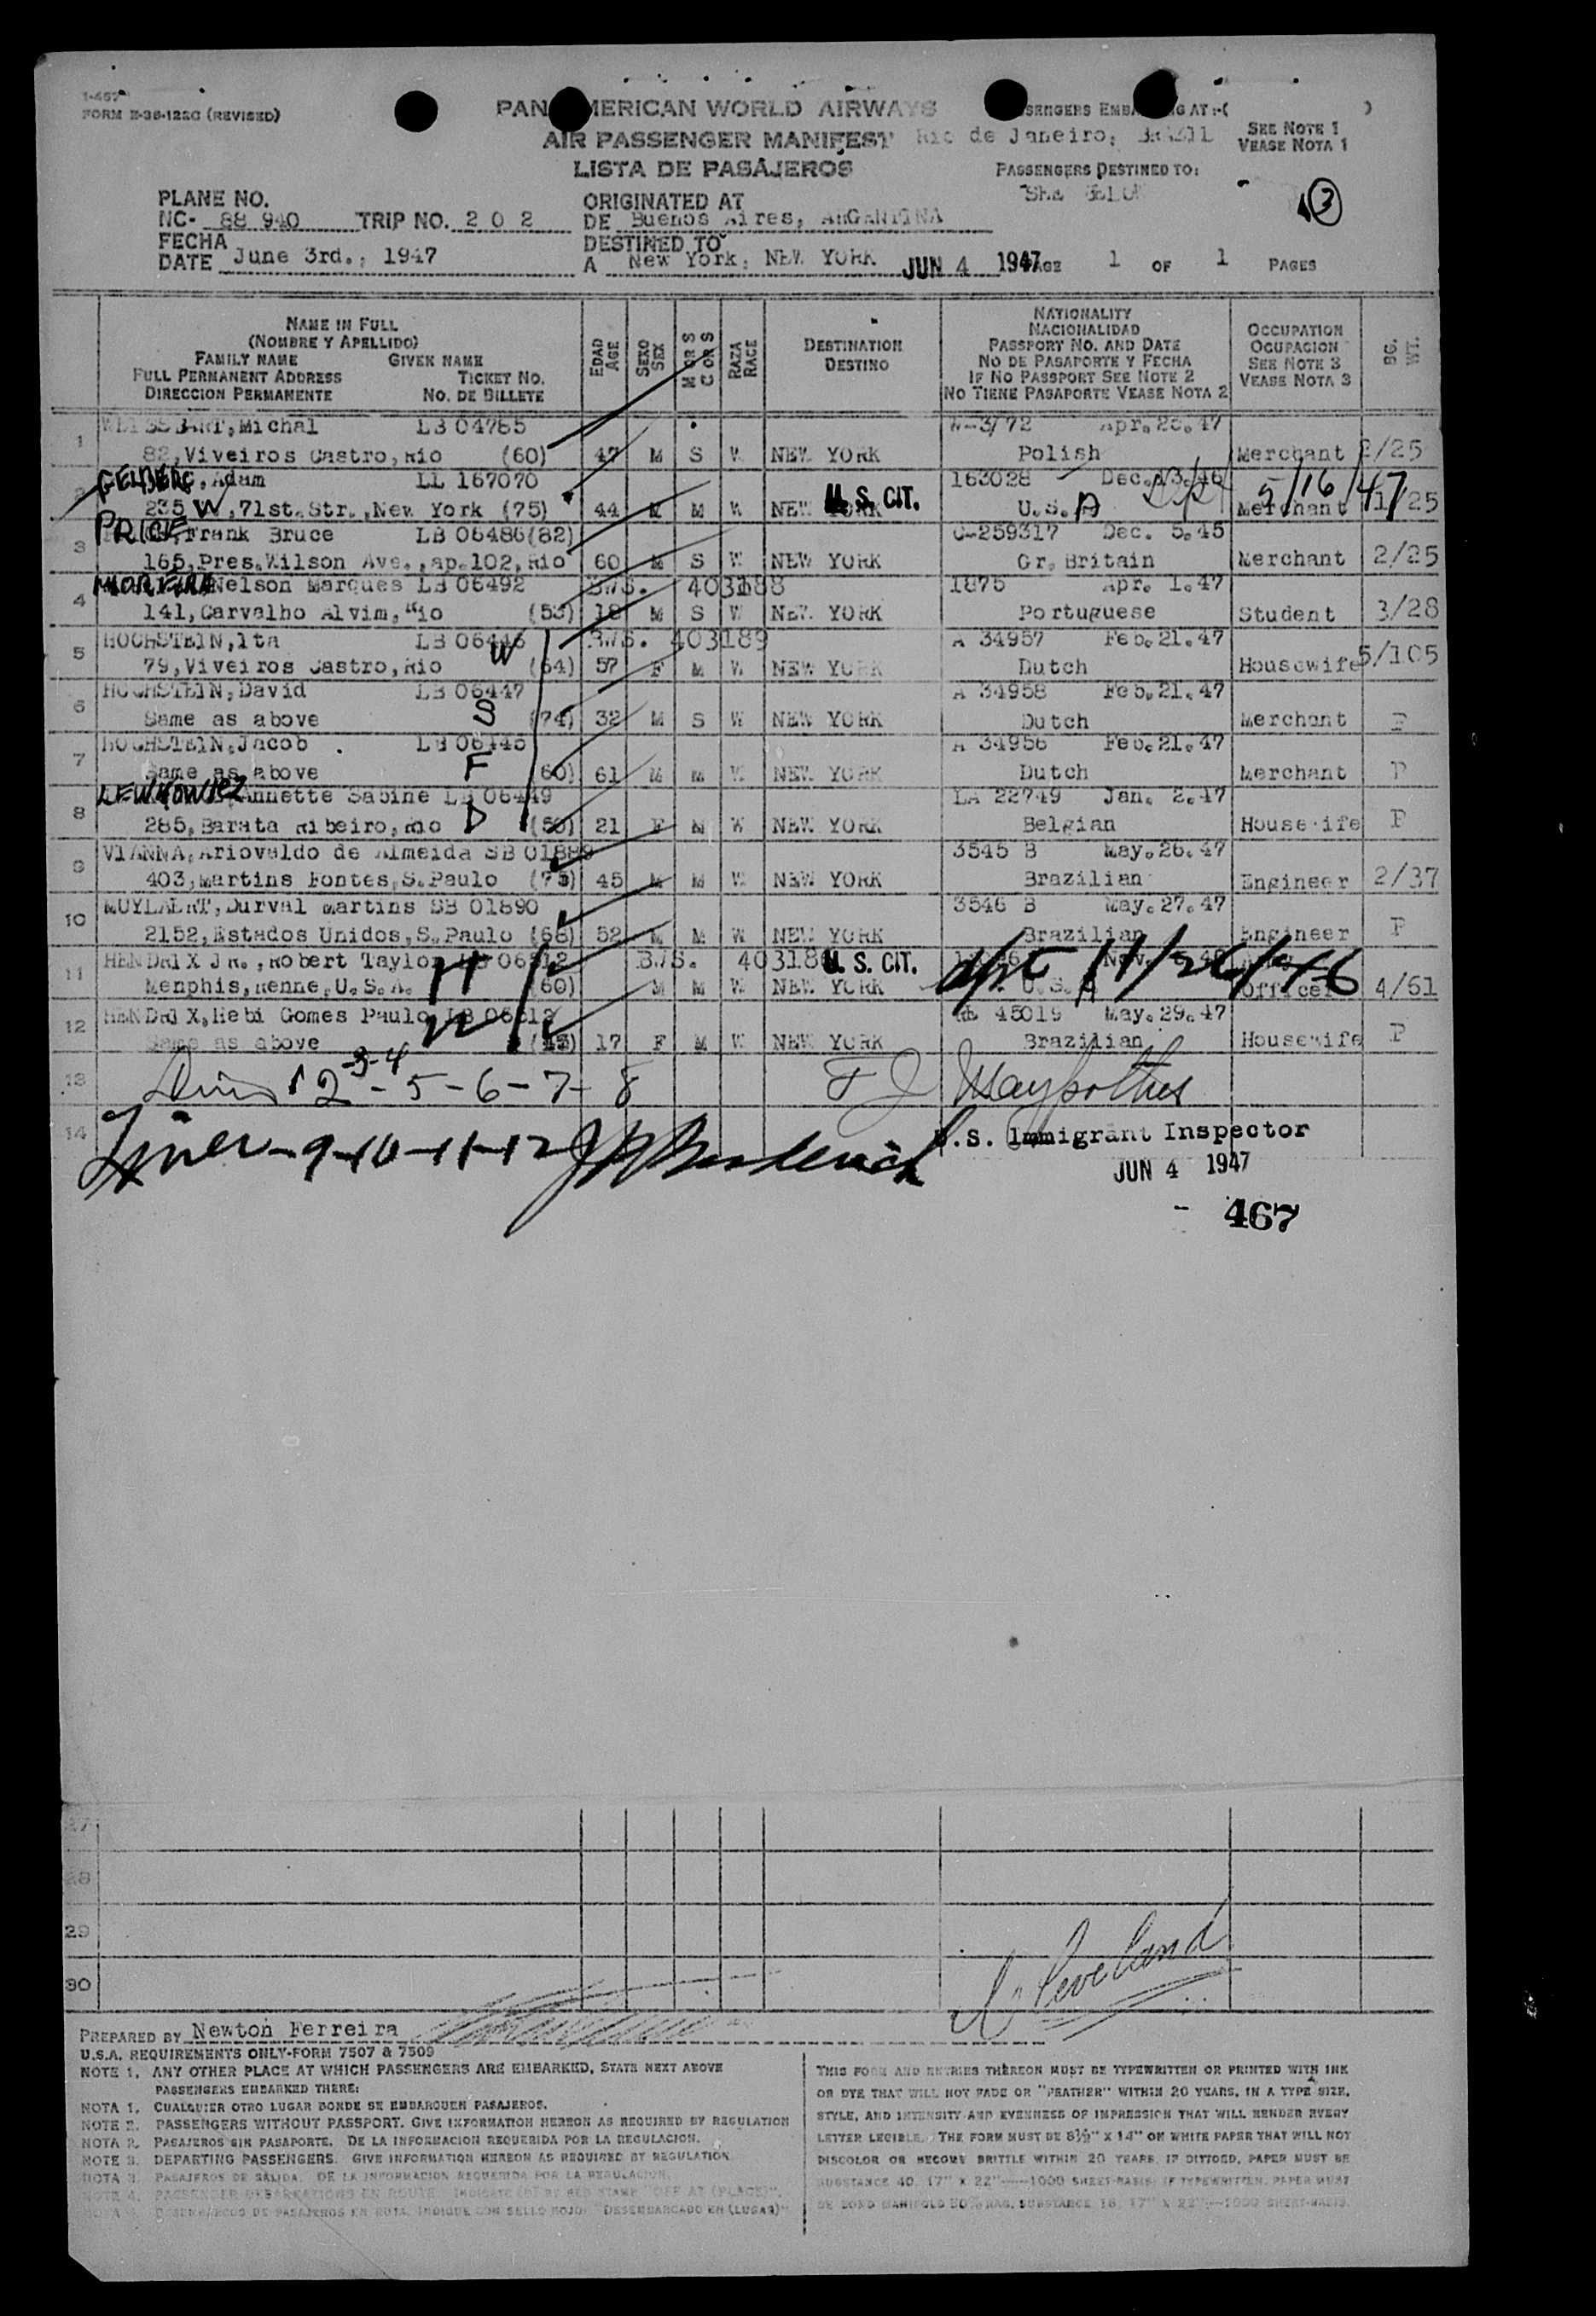 FORM E-36-122C (REVISED)
PAN AMERICAN WORLD AIRWAYS
AIR PASSENGER MANIFEST
LISTA DE PASAJEROS
PASSENGERS EMBARKING AT:-( )
Rio de Janeiro, BRAZIL
SEE NOTE 1
VEASE NOTA 1
PASSENGERS DESTINED TO:
SEE BELOW
3
PLANE NO.
NC- 88 940 TRIP NO. 2 0 2
ORIGINATED AT
DE Buenos Aires, ARGENTINA
FECHA
DATE June 3rd., 1947
DESTINED TO
A New York, NEW YORK
JUN 4 1947
PAGE 1 OF 1 PAGES
NAME IN FULL
(NOMBRE Y APELLIDO)
FAMILY NAME GIVEN NAME
FULL PERMANENT ADDRESS TICKET NO.
DIRECCION PERMANENTE NO. DE BILLETE
EDAD AGE
SEXO SEX
M OR S C OR S
RAZA RACE
DESTINATION
DESTINO
NATIONALITY
NACIONALIDAD
PASSPORT NO. AND DATE
NO DE PASAPORTE Y FECHA
IF NO PASSPORT SEE NOTE 2
NO TIENE PASAPORTE VEASE NOTA 2
OCCUPATION
OCUPACION
SEE NOTE 3
VEASE NOTA 3
BG. WT.
1 WEISSBART, Michal LB 04785 Apr. 26. 47
82, Viveiros Castro, Rio (60) 47 M S W NEW YORK Polish Merchant 2/25
2 GELBERG, Adam LL 167070 163028 Dec. 13. 46
235 W, 71st. Str., New York (75) 44 M M W NEW YORK U. S. CIT. U.S.A Merchant 5/16/47 1/25
3 PRICE, Frank Bruce LB 06486(82) C-259317 Dec. 5. 45
165, Pres. Wilson Ave., ap. 102, Rio 60 M S W NEW YORK Gr. Britain Merchant 2/25
4 MOREIRA Nelson Marques LB 06492 403188 1875 Apr. 1. 47
141, Carvalho Alvim, Rio (53) 18 M S W NEW YORK Portuguese Student 3/28
5 HOCHSTEIN, Ita LB 06446 W 403189 A 34957 Feb. 21. 47
79, Viveiros Castro, Rio (64) 57 F M W NEW YORK Dutch Housewife 5/105
6 HOCHSTEIN, David LB 06447 A 34958 Feb. 21. 47
Same as above S (74) 32 M S W NEW YORK Dutch Merchant P
7 HOCHSTEIN, Jacob LB 06445 A 34956 Feb. 21. 47
Same as above F (60) 61 M M W NEW YORK Dutch Merchant P
8 LEWKOWICZ Annette Sabine LB 06449 LA 22749 Jan. 2. 47
285, Barata Ribeiro, Rio D (50) 21 F M W NEW YORK Belgian Housewife P
9 VIANNA, Ariovaldo de Almeida SB 01889 3545 B May. 26. 47
403, Martins Fontes, S. Paulo (75) 45 M M W NEW YORK Brazilian Engineer 2/37
10 MUYLAERT, Durval Martins SB 01890 3546 B May. 27. 47
2152, Estados Unidos, S. Paulo (68) 52 M M W NEW YORK Brazilian Engineer P
11 HENDRIX JR., Robert Taylor LB 06512 H U. S. CIT. 11/26/46
Menphis, Renne, U. S. A. (60) M M W NEW YORK U.S.A Officer 4/61
12 HENDRIX, Hebi Gomes Paulo W 45019 May. 29. 47
Same as above 17 F M W NEW YORK Brazilian Housewife P
13 1 2 -3-4 - 5 - 6 - 7 - 8
14 - 9-10-11-12
U.S. Immigrant Inspector
JUN 4 1947
- 467
27
28
29
30
Cleveland
PREPARED BY Newton Ferreira
U.S.A. REQUIREMENTS ONLY-FORM 7507 & 7509
NOTE 1. ANY OTHER PLACE AT WHICH PASSENGERS ARE EMBARKED, STATE NEXT ABOVE
PASSENGERS EMBARKED THERE:
NOTA 1. CUALQUIER OTRO LUGAR DONDE SE EMBARQUEN PASAJEROS.
NOTE 2. PASSENGERS WITHOUT PASSPORT. GIVE INFORMATION HEREON AS REQUIRED BY REGULATION
NOTA 2. PASAJEROS SIN PASAPORTE. DE LA INFORMACION REQUERIDA POR LA REGULACION.
NOTE 3. DEPARTING PASSENGERS. GIVE INFORMATION HEREON AS REQUIRED BY REGULATION
NOTA 3. PASAJEROS DE SALIDA. DE LA INFORMACION REQUERIDA POR LA REGULACION.
NOTE 4. PASSENGER DEBARKATIONS EN ROUTE INDICATE (D) BY RED STAMP "OFF AT (PLACE)".
DESEMBARCOS DE PASAJEROS EN RUTA. INDIQUE CON SELLO ROJO: "DESEMBARCADO EN (LUGAR)"
THIS FORM AND ENTRIES THEREON MUST BE TYPEWRITTEN OR PRINTED WITH INK
OR DYE THAT WILL NOT FADE OR "FEATHER" WITHIN 20 YEARS, IN A TYPE SIZE,
STYLE, AND INTENSITY AND EVENNESS OF IMPRESSION THAT WILL RENDER EVERY
LETTER LEGIBLE. THE FORM MUST BE 8½" X 14" ON WHITE PAPER THAT WILL NOT
DISCOLOR OR BECOME BRITTLE WITHIN 20 YEARS. IF DITTOED, PAPER MUST BE
SUBSTANCE 40, 17" X 22"—1000 SHEET-BASIS; IF TYPEWRITTEN, PAPER MUST
BE BOND MANIFOLD 50% RAG, SUBSTANCE 16, 17" X 22"—1000 SHEET-BASIS.